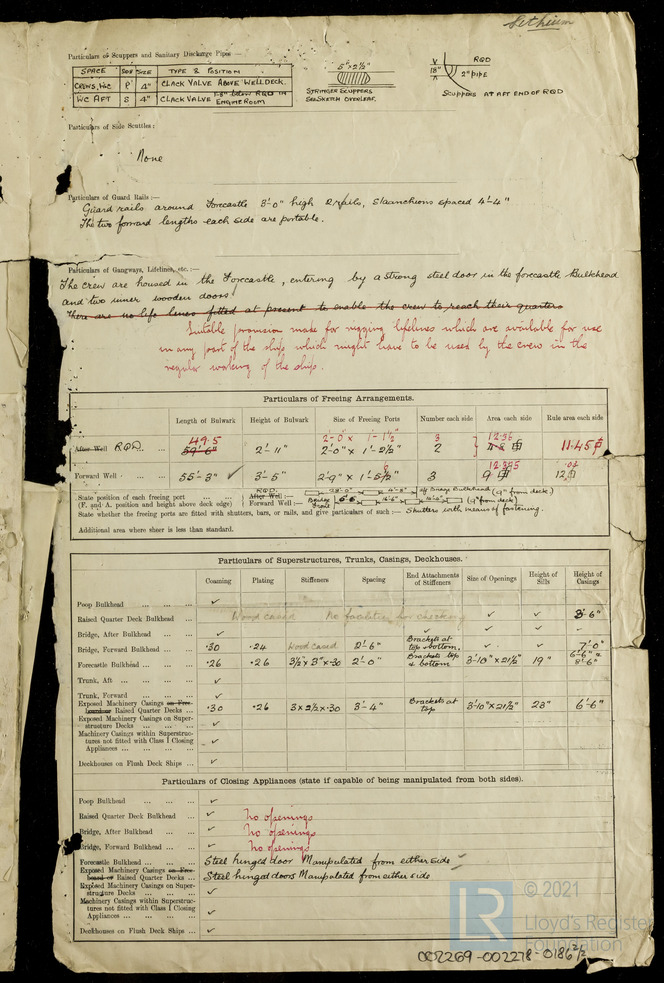 Particulars of Scuppers and Sanitary Discharge Pipes —
SPACE SIDE SIZE TYPE & POSITION
CREWS, W.C P 4" CLACK VALVE ABOVE WELL DECK.
WC AFT S 4" CLACK VALVE 1'-6" below RQD IN ENGINE ROOM
5" × 2½"
STRINGER SCUPPERS
SEE SKETCH OVERLEAF.
RQD
18"
2" PIPE
SCUPPERS AT AFT END OF RQD
Particulars of Side Scuttles :
None
Particulars of Guard Rails :—
Guard rails around Forecastle 3'-0" high 2 rails, Staanchions spaced 4'-4"
The two forward lengths each side are portable.
Particulars of Gangways, Lifelines, etc. :—
The crew are housed in the Forecastle, entering by a strong steel door in the forecastle Bulkhead
and two inner wooden doors
There are no life lines fitted at present to enable the crew to reach their quarters
Suitable provision made for rigging lifelines which are available for use
in any part of the ship which might have to be used by the crew in the
regular working of the ship.
Particulars of Freeing Arrangements.
Length of Bulwark Height of Bulwark Size of Freeing Ports Number each side Area each side Rule area each side
After Well RQD 49.5 59'-6" 2'-11" 2'-0" × 1'-1½" 2'-0" × 1'-2½" 3 2 12.36 11.45
Forward Well 55'-3" ✓ 3'-5" 2'-9" × 1'-5½" 3 12.375 9 12
State position of each freeing port ... ... RQD. After Well :— 28'-0" 4'-8" off Bridge Bulkhead (9" from deck)
(F. and A. position and height above deck edge) Forward Well :— Bridge Front 6'-6" (9" from deck)
State whether the freeing ports are fitted with shutters, bars, or rails, and give particulars of such :— Shutters with means of fastening.
Additional area where sheer is less than standard.
Particulars of Superstructures, Trunks, Casings, Deckhouses.
Coaming Plating Stiffeners Spacing End Attachments of Stiffeners Size of Openings Height of Sills Height of Casings
Poop Bulkhead ... ... ... ✓
Raised Quarter Deck Bulkhead ... Wood cased No facilities for checking ✓ ✓ 3'-6"
Bridge, After Bulkhead ... ... ✓ ✓ ✓ ✓
Bridge, Forward Bulkhead ... ... .30 .24 Wood cased 2'-6" Brackets at top & bottom. ✓ ✓ 7'-0"
Forecastle Bulkhead ... ... ... .26 .26 3½" × 3" × .30 2'-0" Brackets top & bottom 3'-10" × 21½" 19" 6'-6" &
Trunk, Aft ... ... ... ✓
Trunk, Forward ... ... ... ✓
Exposed Machinery Casings on Freeboard or Raised Quarter Decks ... .30 .26 3 × 2½ × .30 3'-4" Brackets at top 3'-10" × 21½" 23" 6'-6"
Exposed Machinery Casings on Superstructure Decks ... ... ... ✓
Machinery Casings within Superstructures not fitted with Class I Closing Appliances ... ... ... ... ✓
Deckhouses on Flush Deck Ships ... ✓
Particulars of Closing Appliances (state if capable of being manipulated from both sides).
Poop Bulkhead ... ... ... ✓
Raised Quarter Deck Bulkhead ... ✓ No openings
Bridge, After Bulkhead ... ... ✓ No openings
Bridge, Forward Bulkhead ... ... ✓ No openings
Forecastle Bulkhead ... ... ... Steel hinged door Manipulated from either side
Exposed Machinery Casings on Freeboard or Raised Quarter Decks ... Steel hinged doors Manipulated from either side
Exposed Machinery Casings on Superstructure Decks ... ... ... ✓
Machinery Casings within Superstructures not fitted with Class I Closing Appliances ... ... ... ... ✓
Deckhouses on Flush Deck Ships ... ✓
LR © 2021
Lloyd's Register
Foundation
002269-002278-0186 2/2